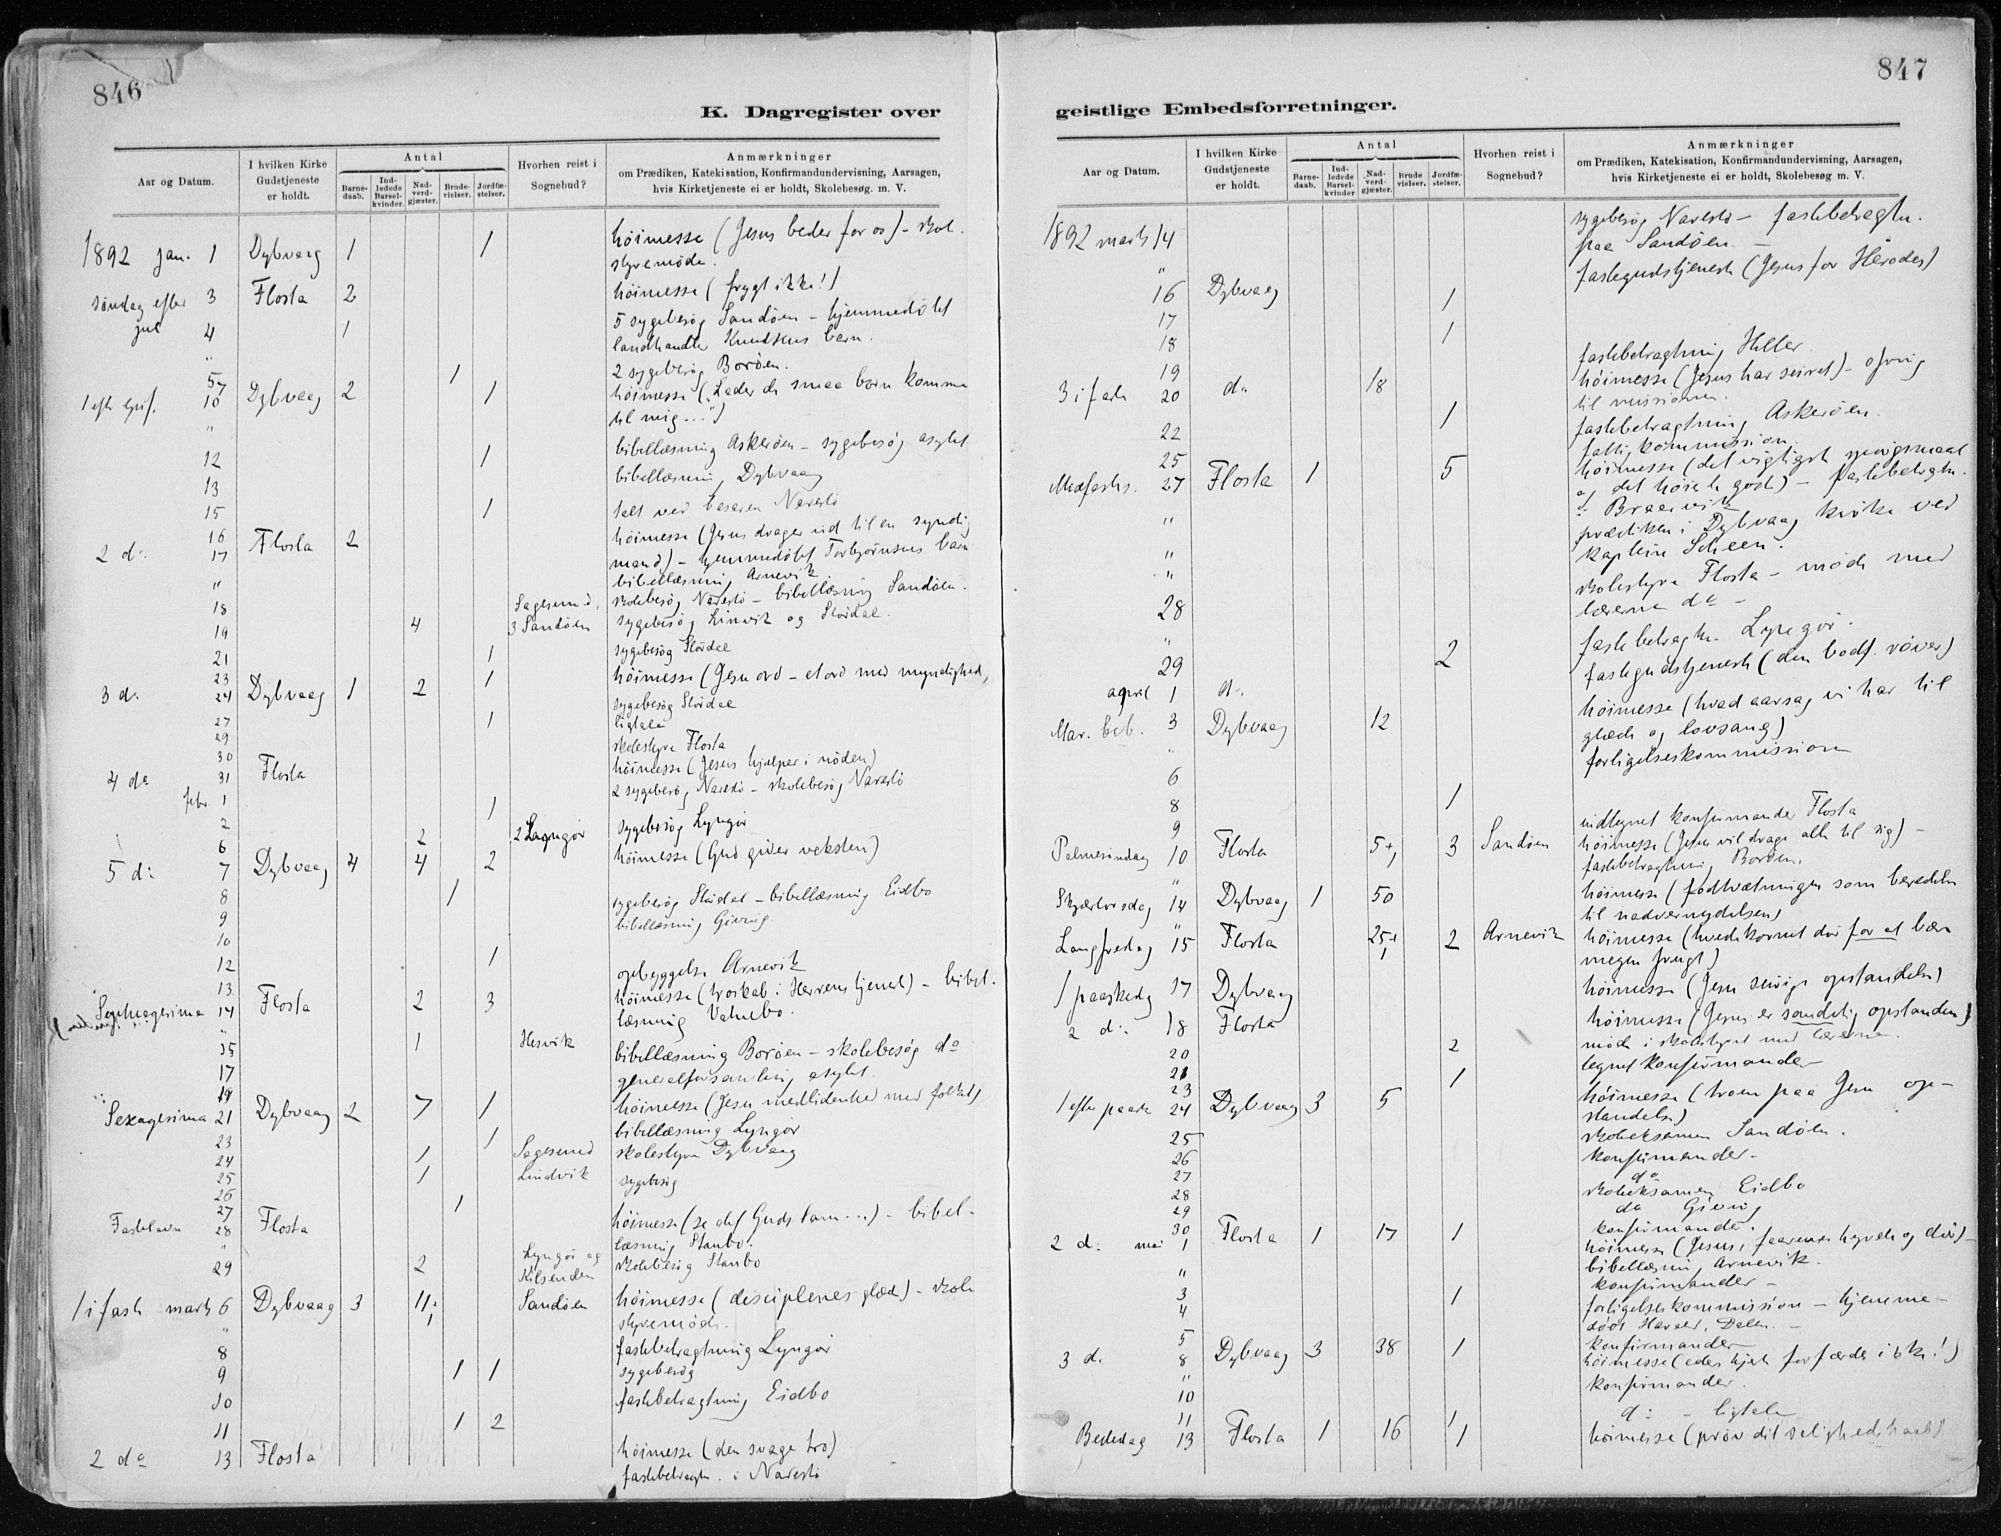 846
K. Dagregister over
Aar og Datum.
I hvilken Kirke Gudstjeneste er holdt.
Antal
Barnedaab.
Indledede Barselkvinder.
Nadverdgjæster.
Brudevielser.
Jordfæstelser.
Hvorhen reist i Sognebud?
Anmærkninger
om Prædiken, Katekisation, Konfirmandundervisning, Aarsagen,
hvis Kirketjeneste ei er holdt, Skolebesøg. m. V.
1892 jan. 1 Dybvaag 1 1 høimesse (Jesus beder for os) - skol.
styremøde.
søndag efter jul 3 Flosta 2 høimesse (frygt ikke!)
4 1 5 sygebesøg Sandøen - hjemmedøbt
landhandler Knudsens barn.
5 1 2 sygebesøg Borøen.
7
1 efter Epif. 10 Dybvaag 2 1 høimesse ("Lader de smaa børn komme
til mig...")
12 1 bibellæsning Askerøen - sygebesøg asylet
13 bibellæsning Dybvaag
15 1 talt ved basaren Narestø
16
2 do 17 Flosta 2 høimesse (Jesus drager ind til en syndig
mand) - hjemmedøbt Torbjørnsens barn
" bibellæsning Arnevik.
18 Sagesund, skolebesøg Narestø - bibellæsning Sandøen.
19 4 3 Sandøen sygebesøg Linvik og Slørdal.
21 1 sygebesøg Slørdal
23 1
3 do 24 Dybvaag 1 2 høimesse (Jesu ord - et ord med myndighed,
sygebesøg Slørdal
27 1 ligtale
29 skolestyre Flosta
30
4 do 31 Flosta høimesse (Jesus hjælper i nøden)
febr. 1 2 sygebesøg Narestø - skolebesøg Narestø
2 1
6 2 2 Lyngør sygebesøg Lyngør
5 do 7 Dybvaag 4 4 2 høimesse (Gud giver veksten)
8 1 sygebesøg Slørdal - bibellæsning Eidbo
9 bibellæsning Gieving.
10
12 1 opbyggelse Arnevik
13
Septuagesima 14 Flosta 2 3 høimesse (troskab i Herrens tjenest) - bibel.
læsning Vatnebo.
15 1 Hesvik bibellæsning Borøen - skolebesøg do
17 generalforsamling asylet.
19
Sexagesima 21 Dybvaag 2 7 1 høimesse (Jesu medlidenhed med folket)
23 1 bibellæsning Lyngør
24 1 Sagesund skolestyre Dybvaag
25 1 Lindvik sygebesøg
26
27 1
Fastelavn 28 Flosta høimesse (se det Guds lam...) - bibel-
læsning Staubo.
29 2 Lyngør og skolebesøg Staubo
1 i faste marts 6 Dybvaag 3 11 Sandøen høimesse (disciplenes glæde) - skole
styremøde.
8 fastebetragtning Lyngør
9 1 1 sygebesøg
10 fastebetragtning Eidbo
11 1 2
2 do 13 Flosta høimesse (den svage tro)
fastebetragtn. i Narestø
847
geistlige Embedsforretninger.
Aar og Datum.
I hvilken Kirke Gudstjeneste er holdt.
Antal
Barnedaab.
Indledede Barselkvinder.
Nadverdgjæster.
Brudevielser.
Jordfæstelser.
Hvorhen reist i Sognebud?
Anmærkninger
om Prædiken, Katekisation, Konfirmandundervisning, Aarsagen,
hvis Kirketjeneste ei er holdt, Skolebesøg. m. V.
1892 marts 14 sygebesøg Narestø - fastebetragtn.
paa Sandøen. -
16 Dybvaag 1 fastegudstjeneste (Jesus for Herodes)
17 1
18 fastebetragtning Heller.
19
3 i faste 20 do 18 høimesse (Jesus har seiret) - ofring
til missionen.
22 1 fastebetragtning Askerøen.
25 fattigkommission.
Midfaste. 27 Flosta 1 5 høimesse (det vigtigste spørgsmaal
og det høieste gode) - fastebetragtn.
i Braarvik
" prædiken i Dybvaag kirke ved
kaptein Scheen.
28 skolestyre Flosta - møde med
lærerne do -
" fastebetragtn. Lyngør.
29 2
april 1 do fastegudstjeneste (den bodf. røver)
Mar. beb. 3 Dybvaag 12 høimesse (hvad aarsag vi har til
glæde og lovsang)
6 forligelseskommission
8 1
9 indtegnet konfirmander Flosta
Palmesøndag 10 Flosta 5+1 3 Sandøen høimesse (Jesus vil drage alle til sig) -
fastebetragtning Borøen.
Skjærtorsdag 14 Dybvaag 1 50 høimesse (fodtvætningen som beredelse
til nadvernydelsen)
Langfredag 15 Flosta 25+1 2 Arnevik høimesse (hvedekornet dør for at bære
megen frugt)
1 paaskedag 17 Dybvaag høimesse (Jesu seirige opstandelse)
2 do 18 Flosta høimesse (Jesus er sandelig opstanden)
20 2 møde i skolestyret med lærerne.
21 1 tegnet konfirmander
23
1 efter paaske 24 Dybvaag 3 5 høimesse (troen paa Jesu op-
standelse)
25 skoleksamen Sandøen.
26 konfirmander.
27 do
28 skoleksamen Eidbo
29 do Gieving
30 konfirmander.
2 do mai 1 Flosta 1 17 1 høimesse (Jesus, faarenes hyrde og dør) -
" bibellæsning Arnevik.
3 1 konfirmander -
4 forligelseskommission - hjemme-
døbt Dalen. -
5 konfirmander
3 do 8 Dybvaag 3 38 1 høimesse (eders hjerte forfærdes ikke!)
10 konfirmander.
11 1 do - ligtale
Bededag 13 Flosta 1 16 1 høimesse (prøv dit saligheds haab)